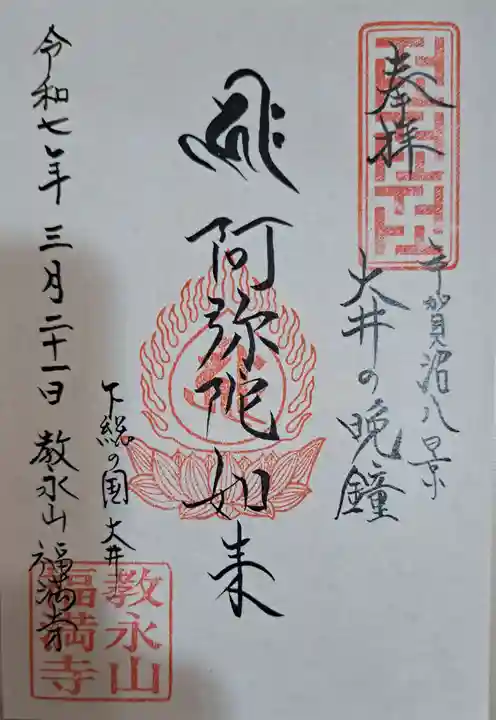 奉拝
手賀沼八景
大井の晩鐘
阿弥陀如来
下総の国大井
令和七年三月二十一日 教永山福満寺
教永山
福満寺